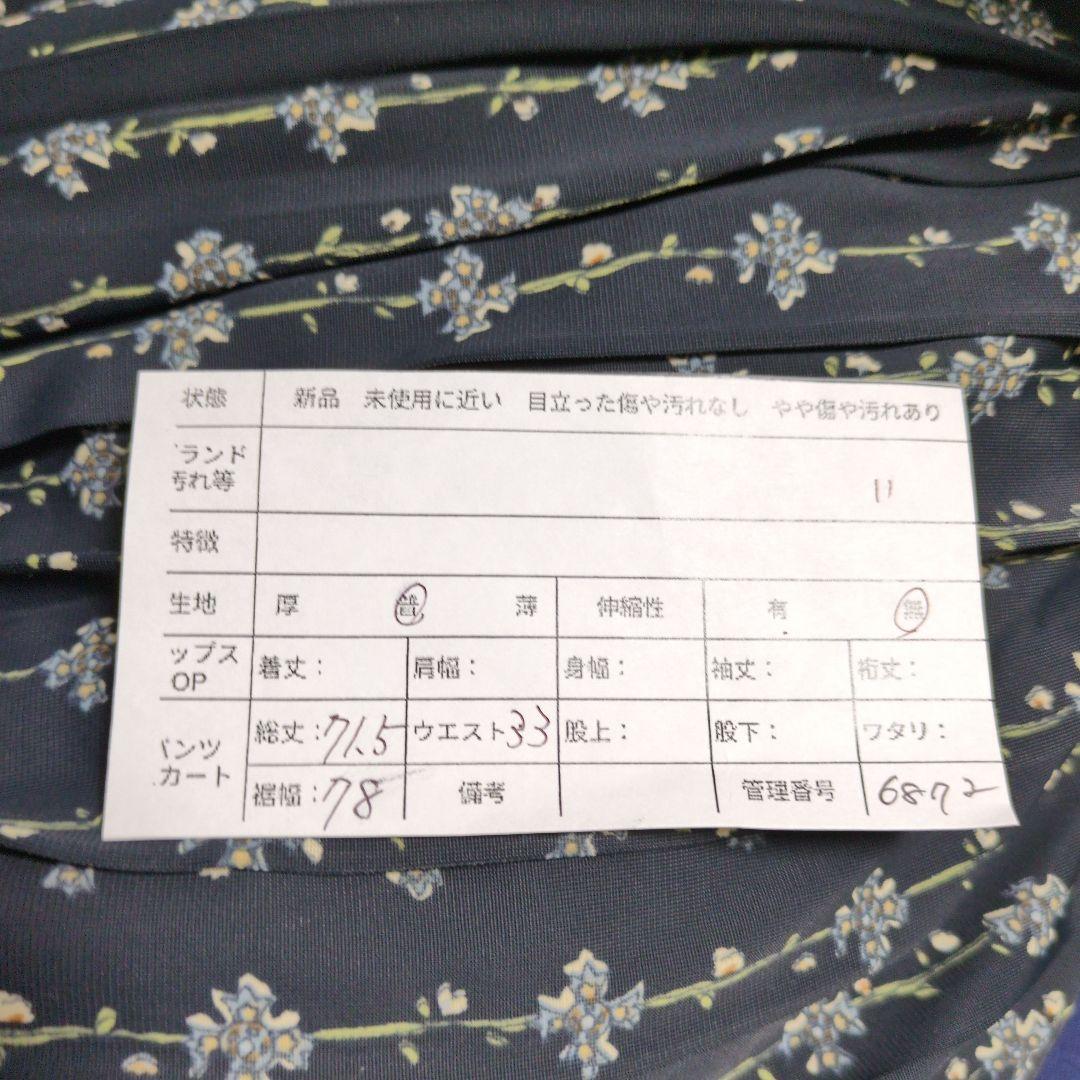 状態 新品 未使用に近い 目立った傷や汚れなし やや傷や汚れあり
ランド
汚れ等 11
特徴
生地 厚 普 薄 伸縮性 有 無
ップス
OP 着丈: 肩幅: 身幅: 袖丈: 裄丈:
パンツ
カート 総丈:71.5 ウエスト33 股上: 股下: ワタリ:
裾幅:78 備考 管理番号 6872